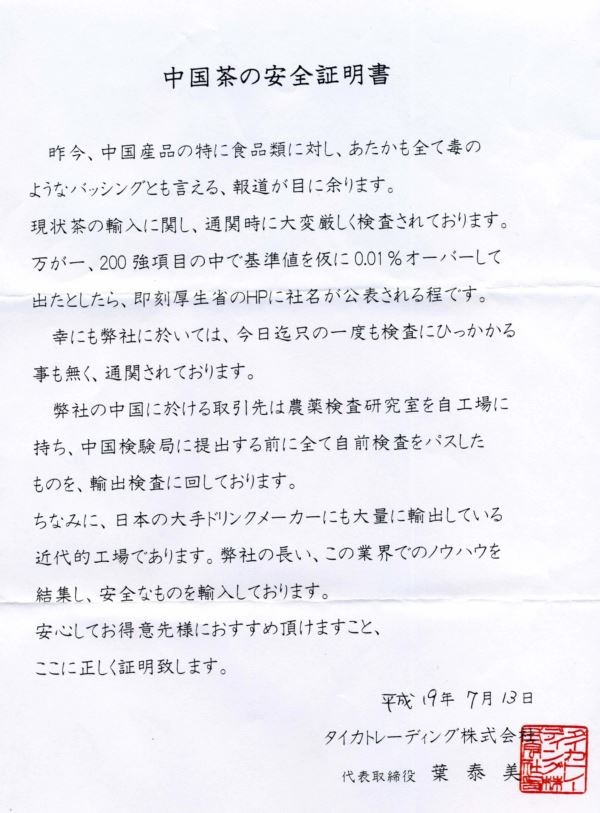 中国茶の安全証明書
昨今、中国産品の特に食品類に対し、あたかも全て毒の
ようなバッシングとも言える、報道が目に余ります。
現状茶の輸入に関し、通関時に大変厳しく検査されております。
万が一、200強項目の中で基準値を仮に0.01%オーバーして
出たとしたら、即刻厚生省のHPに社名が公表される程です。
幸にも弊社に於いては、今日迄只の一度も検査にひっかかる
事も無く、通関されております。
弊社の中国に於ける取引先は農薬検査研究室を自工場に
持ち、中国検験局に提出する前に全て自前検査をパスした
ものを、輸出検査に回しております。
ちなみに、日本の大手ドリンクメーカーにも大量に輸出している
近代的工場であります。弊社の長い、この業界でのノウハウを
結集し、安全なものを輸入しております。
安心してお得意先様におすすめ頂けますこと、
ここに正しく証明致します。
平成19年7月13日
タイカトレーディング株式会社
代表取締役 葉 泰 美